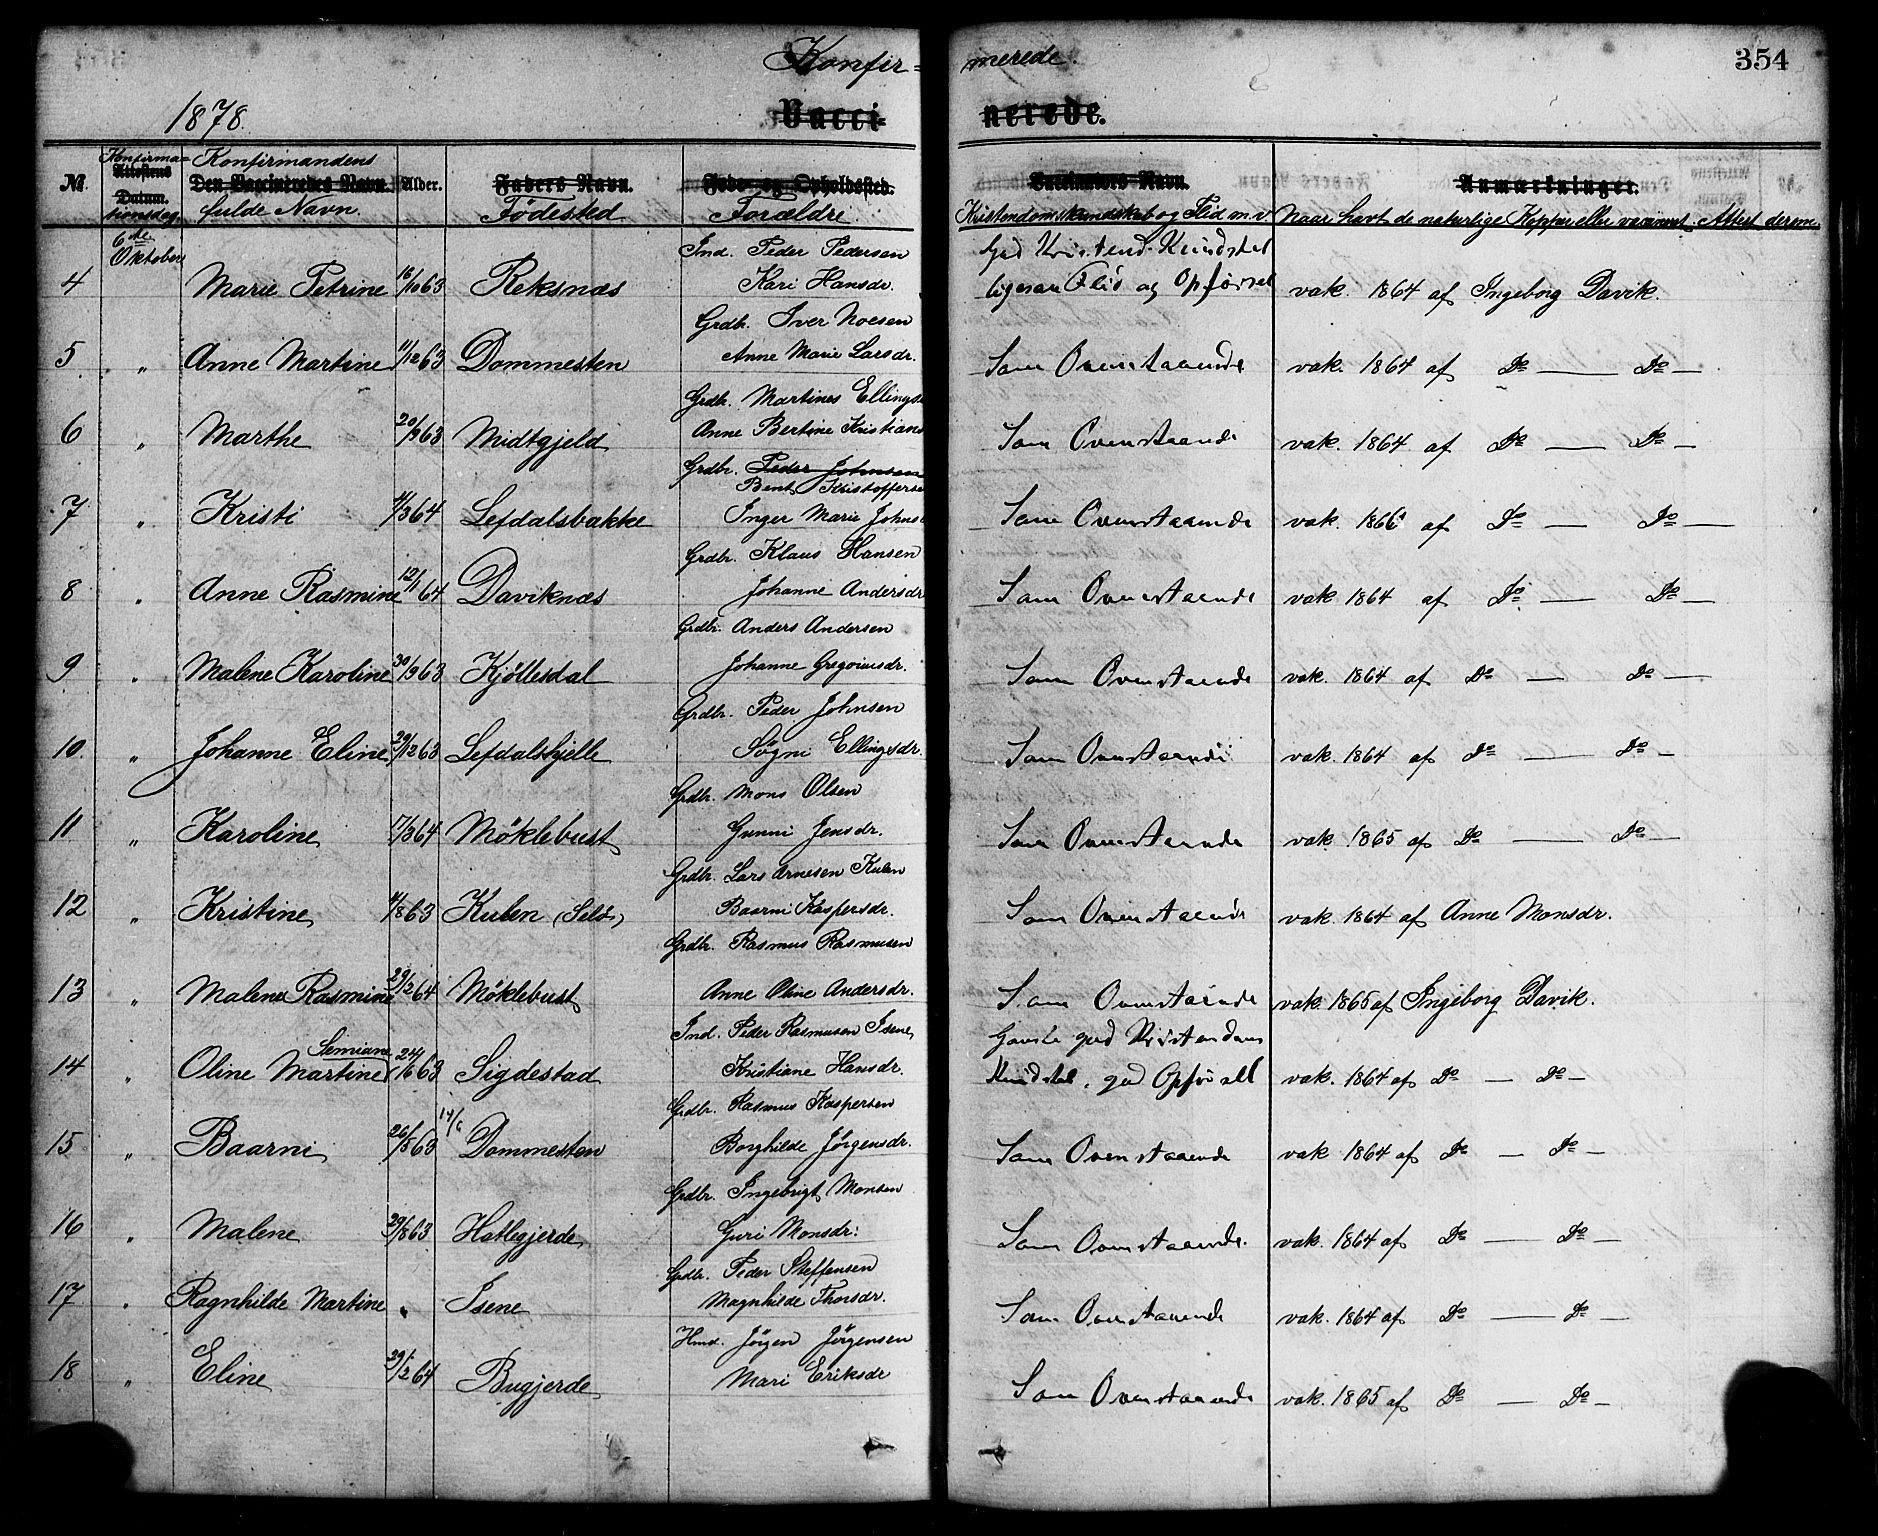 Konfir= merede. 354
1878. Vacci= nerede.
№ Konfirma= Attestens Datum. tionsdag Konfirmandens Den Vaccineredes Navn. fulde Navn. Alder. Faders Navn. Fødested Føde- og Opholdssted. Forældre Vaccinators Navn. Kristendomskundskab og Flid m.v. Anmærkninger. Naar havt de naturlige Kopper eller vaccineret. Attest derom.
6te Oktober Ind. Peder Pedersen God Kristend. Kundskab
4 Marie Petrine 16/10 63 Reksnæs Kari Hansdr. ligesaa Flid og Opførsel vak. 1864 af Ingeborg Davik.
Grdbr. Iver
5 " Anne Martine 11/12 63 Dommesten Anne Marie Larsdr. Som Ovenstaaende vak. 1864 af Do — Do —
Grdbr. Martines Ellings
6 " Marthe 20/9 63 Midtgjeld Anne Bertine Kristians Som Ovenstaaende vak. 1864 af Do — Do —
Grdbr. Peder Johnsen
Bent Kristoffersen
7 " Kristi /3 64 Lefdalsbakke Inger Marie Johns Som Ovenstaaende vak. 1866 af Do — Do —
Grdbr. Klaus Hansen
8 " Anne Rasmine 12/1 64 Daviknæs Johanne Andersdr Som Ovenstaaende vak. 1864 af Do — Do —
Grdbr. Anders Andersen
9 " Malene Karoline 30/9 63 Kjöllesdal Johanne Gregoriusdr. Som Ovenstaaende vak. 1864 af Do — Do —
Grdbr. Peder Johnsen
10. " Johanne Eline 29/12 63 Lefdalshjelle Sögni Ellingsdr. Som Ovenstaaende vak. 1864 af Do — Do —
Grdbr. Mons Olsen
11 " Karoline 17/3 64 Möklebust Gunni Jensdr. Som Ovenstaaende vak. 1865 af Do — Do —
Grdbr. Lars Arnesen Kulen
12 " Kristine 4/8 63 Kulen (Selö) Baarni Kaspersdr. Som Ovenstaaende vak. 1864 af Anne Monsdr.
Grdbr. Rasmus Rasmusen
13 " Malene Rasmine 29/2 64 Möklebust Anne Oline Andersdr. Som Ovenstaaende vak. 1865 af Ingeborg Davik.
Ind. Peder Rasmusen Isene Ganske god Kristendoms
Semiane
14 " Oline Martine 24/6 63 Sigdestad Kristiane Hansdr. Kundskab, god Opførsel vak. 1864 af Do — Do —
Grdbr. Rasmus Kaspersen
14/6
15 " Baarni 26/5 63 Dommesten Borghilde Jörgensdr. Som Ovenstaaende vak 1864 af Do — Do —
Grdbr. Ingebrigt Monsen
16 " Malene 29/8 63 Hatlegjerde Guri Monsdr. Som Ovenstaaende vak. 1864 af Do — Do —
Grdbr. Peder Steffensen
17 " Ragnhilde Martine " Isene Magnhilde Thorsdr. Som Ovenstaaende vak. 1864 af Do — Do —
Hmd. Jörgen Jörgensen
18 " Eline 29/2 64 Bugjerde Mari Eriksdr Som Ovenstaaende vak. 1865 af Do — Do —